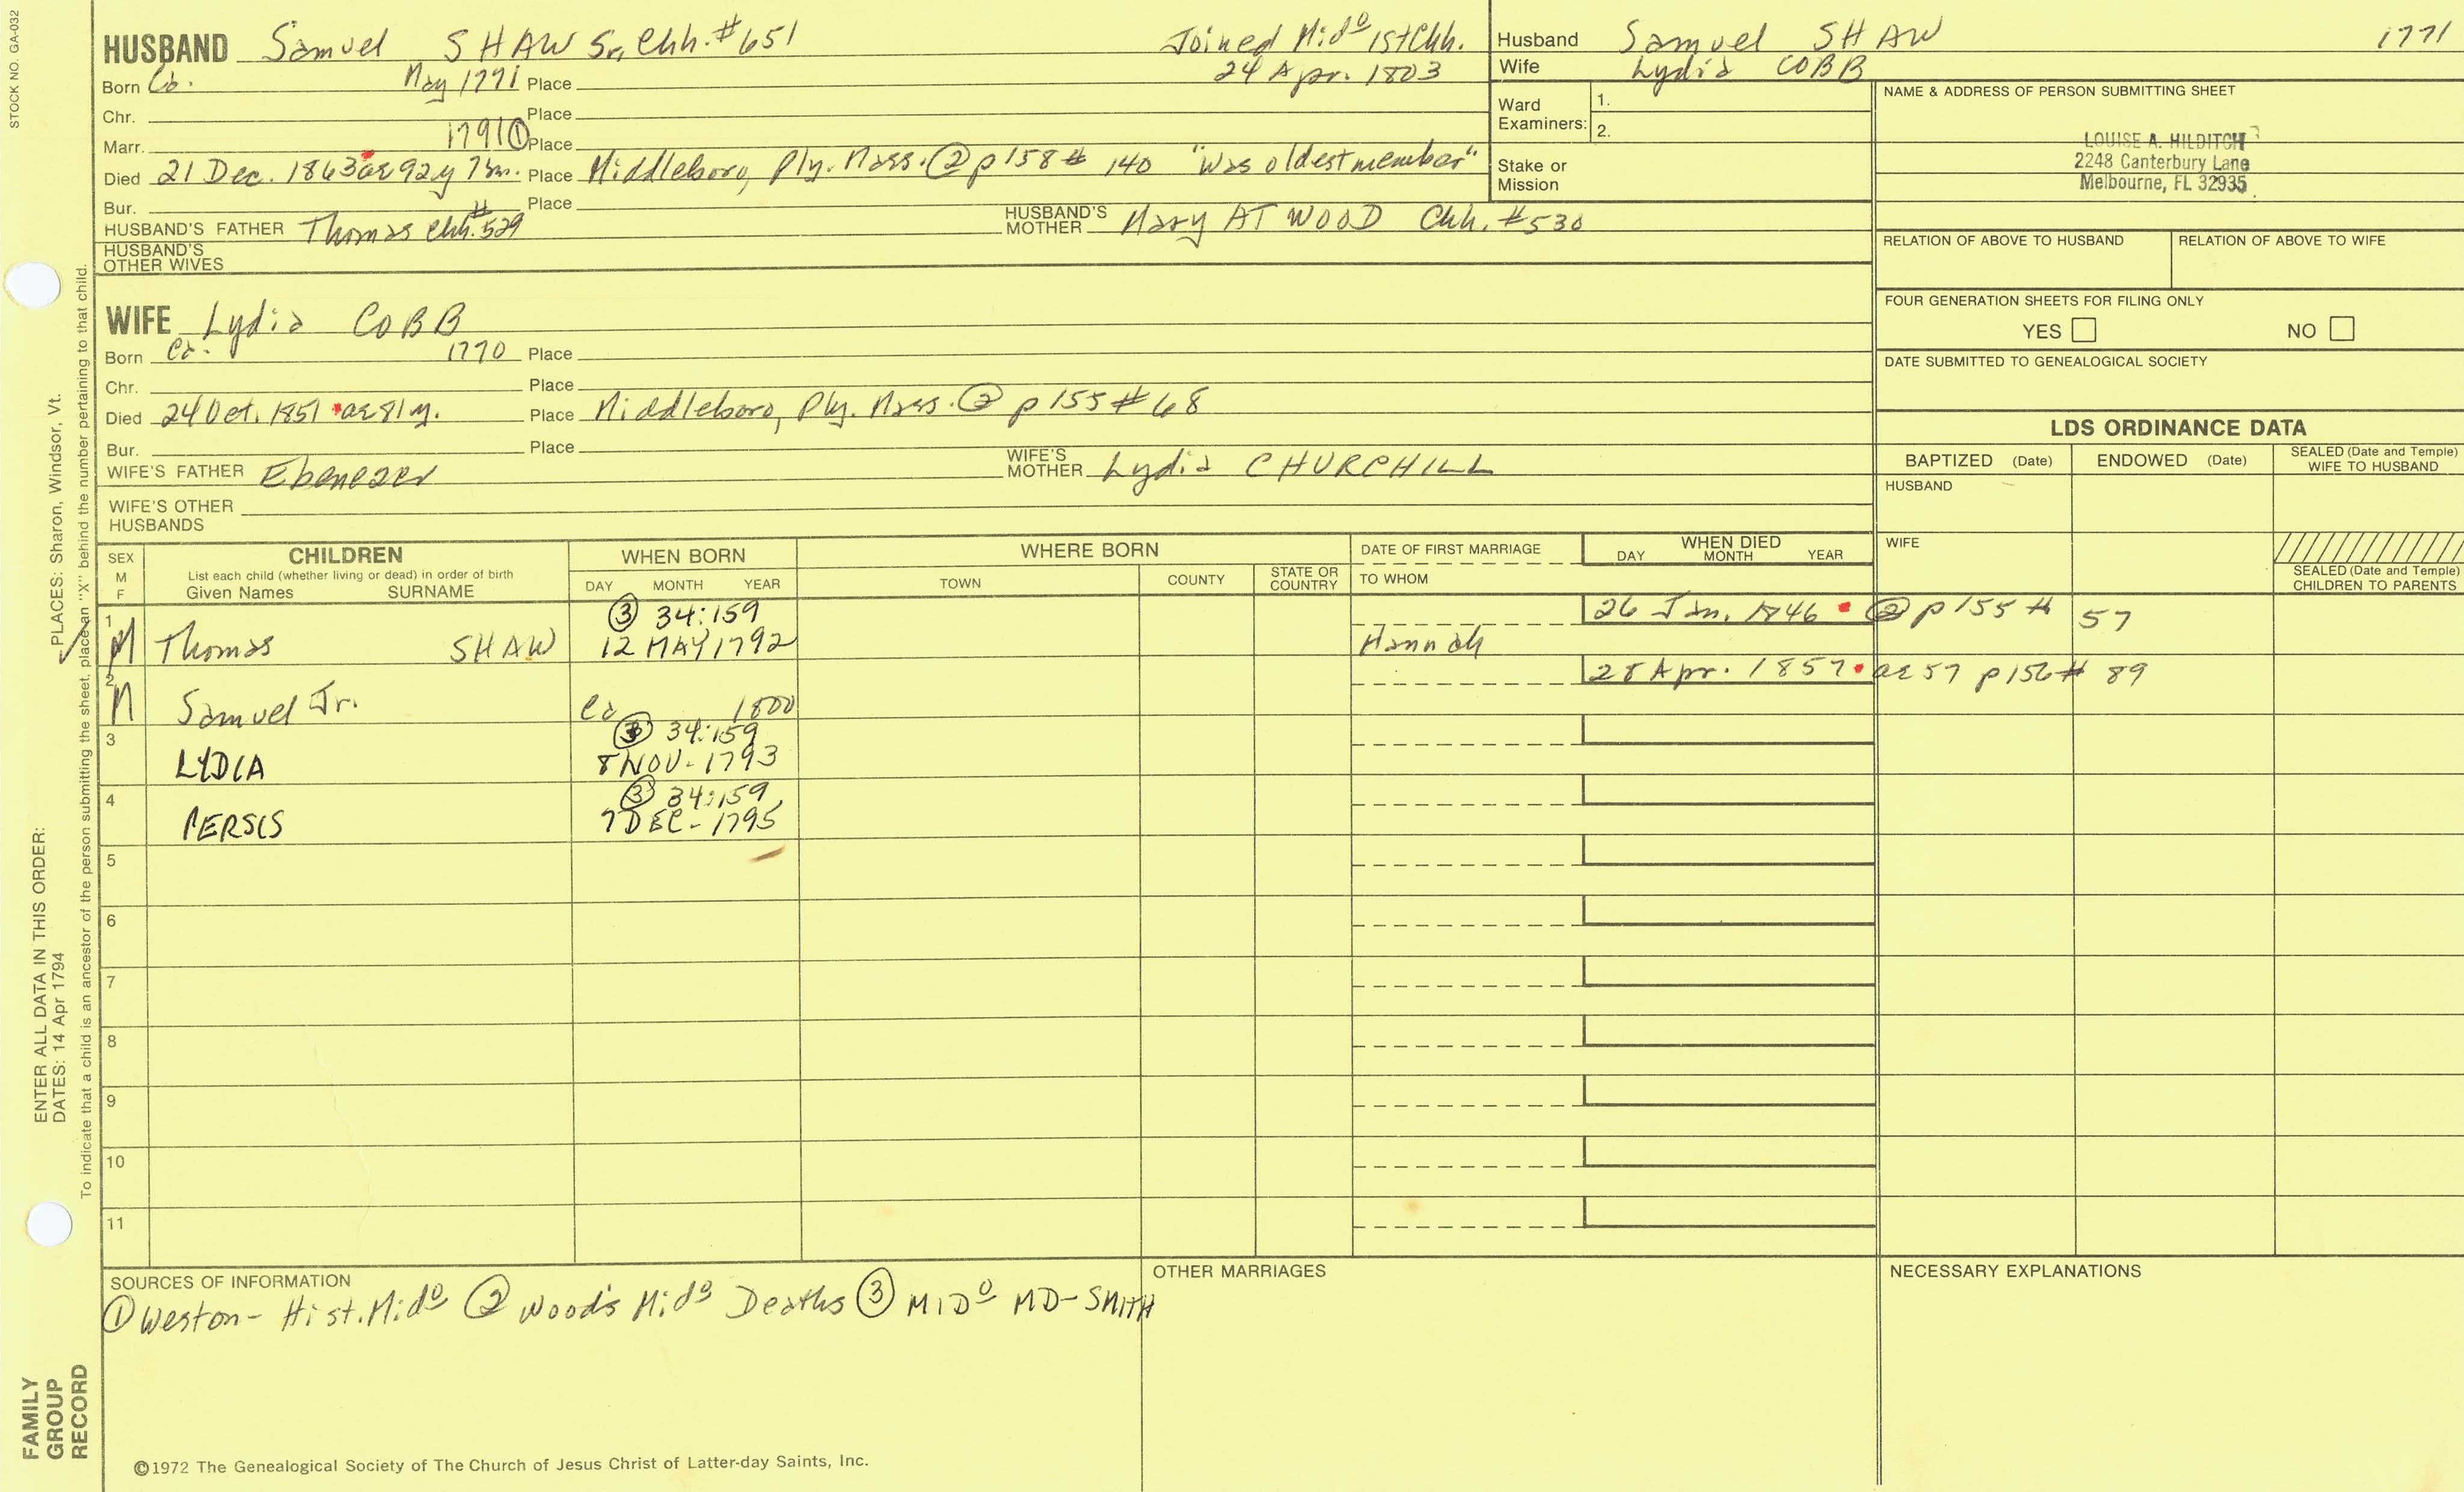 STOCK NO. GA-032
HUSBAND Samuel SHAW Sr, Chh. #651 Joined Mido 1st Chh.
24 Apr. 1803
Born Ca. May 1771 Place
Chr. Place
Marr. 1791 ① Place
Died 21 Dec. 1863 ae 92y 7m. Place Middleboro, Ply. Mass. ② p158 # 140 "Was oldest member"
Bur. Place
HUSBAND'S FATHER Thomas Chh. #529 HUSBAND'S MOTHER Mary ATWOOD Chh. #530
HUSBAND'S OTHER WIVES
Husband Samuel SHAW 1771
Wife Lydia COBB
Ward Examiners: 1.
2.
Stake or Mission
NAME & ADDRESS OF PERSON SUBMITTING SHEET
LOUISE A. HILDITCH
2248 Canterbury Lane
Melbourne, FL 32935
RELATION OF ABOVE TO HUSBAND RELATION OF ABOVE TO WIFE
FOUR GENERATION SHEETS FOR FILING ONLY
YES NO
DATE SUBMITTED TO GENEALOGICAL SOCIETY
WIFE Lydia COBB
Born Ca. 1770 Place
Chr. Place
Died 24 Oct. 1851 ae 81y. Place Middleboro, Ply. Mass. ② p155 #68
Bur. Place
WIFE'S FATHER Ebenezer WIFE'S MOTHER Lydia CHURCHILL
WIFE'S OTHER HUSBANDS
LDS ORDINANCE DATA
BAPTIZED (Date) ENDOWED (Date) SEALED (Date and Temple) WIFE TO HUSBAND
HUSBAND
WIFE
SEALED (Date and Temple) CHILDREN TO PARENTS
SEX M F
CHILDREN
List each child (whether living or dead) in order of birth
Given Names SURNAME
WHEN BORN
DAY MONTH YEAR
WHERE BORN
TOWN COUNTY STATE OR COUNTRY
DATE OF FIRST MARRIAGE
TO WHOM
WHEN DIED
DAY MONTH YEAR
1 ③ 34:159 26 Jan. 1846 ② p155 # 57
M Thomas SHAW 12 MAY 1792 Hannah
2 28 Apr. 1857 ae 57 p156 # 89
M Samuel Jr. Ca 1800
3 ③ 34:159
LYDIA 8 NOV - 1793
4 ③ 34:159
PERSIS 7 DEC - 1795
5
6
7
8
9
10
11
SOURCES OF INFORMATION
① Weston - Hist. Mido ② Wood's Mido Deaths ③ MIDo MD - SMITH
OTHER MARRIAGES
NECESSARY EXPLANATIONS
©1972 The Genealogical Society of The Church of Jesus Christ of Latter-day Saints, Inc.
ENTER ALL DATA IN THIS ORDER:
DATES: 14 Apr 1794
PLACES: Sharon, Windsor, Vt.
To indicate that a child is an ancestor of the person submitting the sheet, place an "X" behind the number pertaining to that child.
FAMILY
GROUP
RECORD